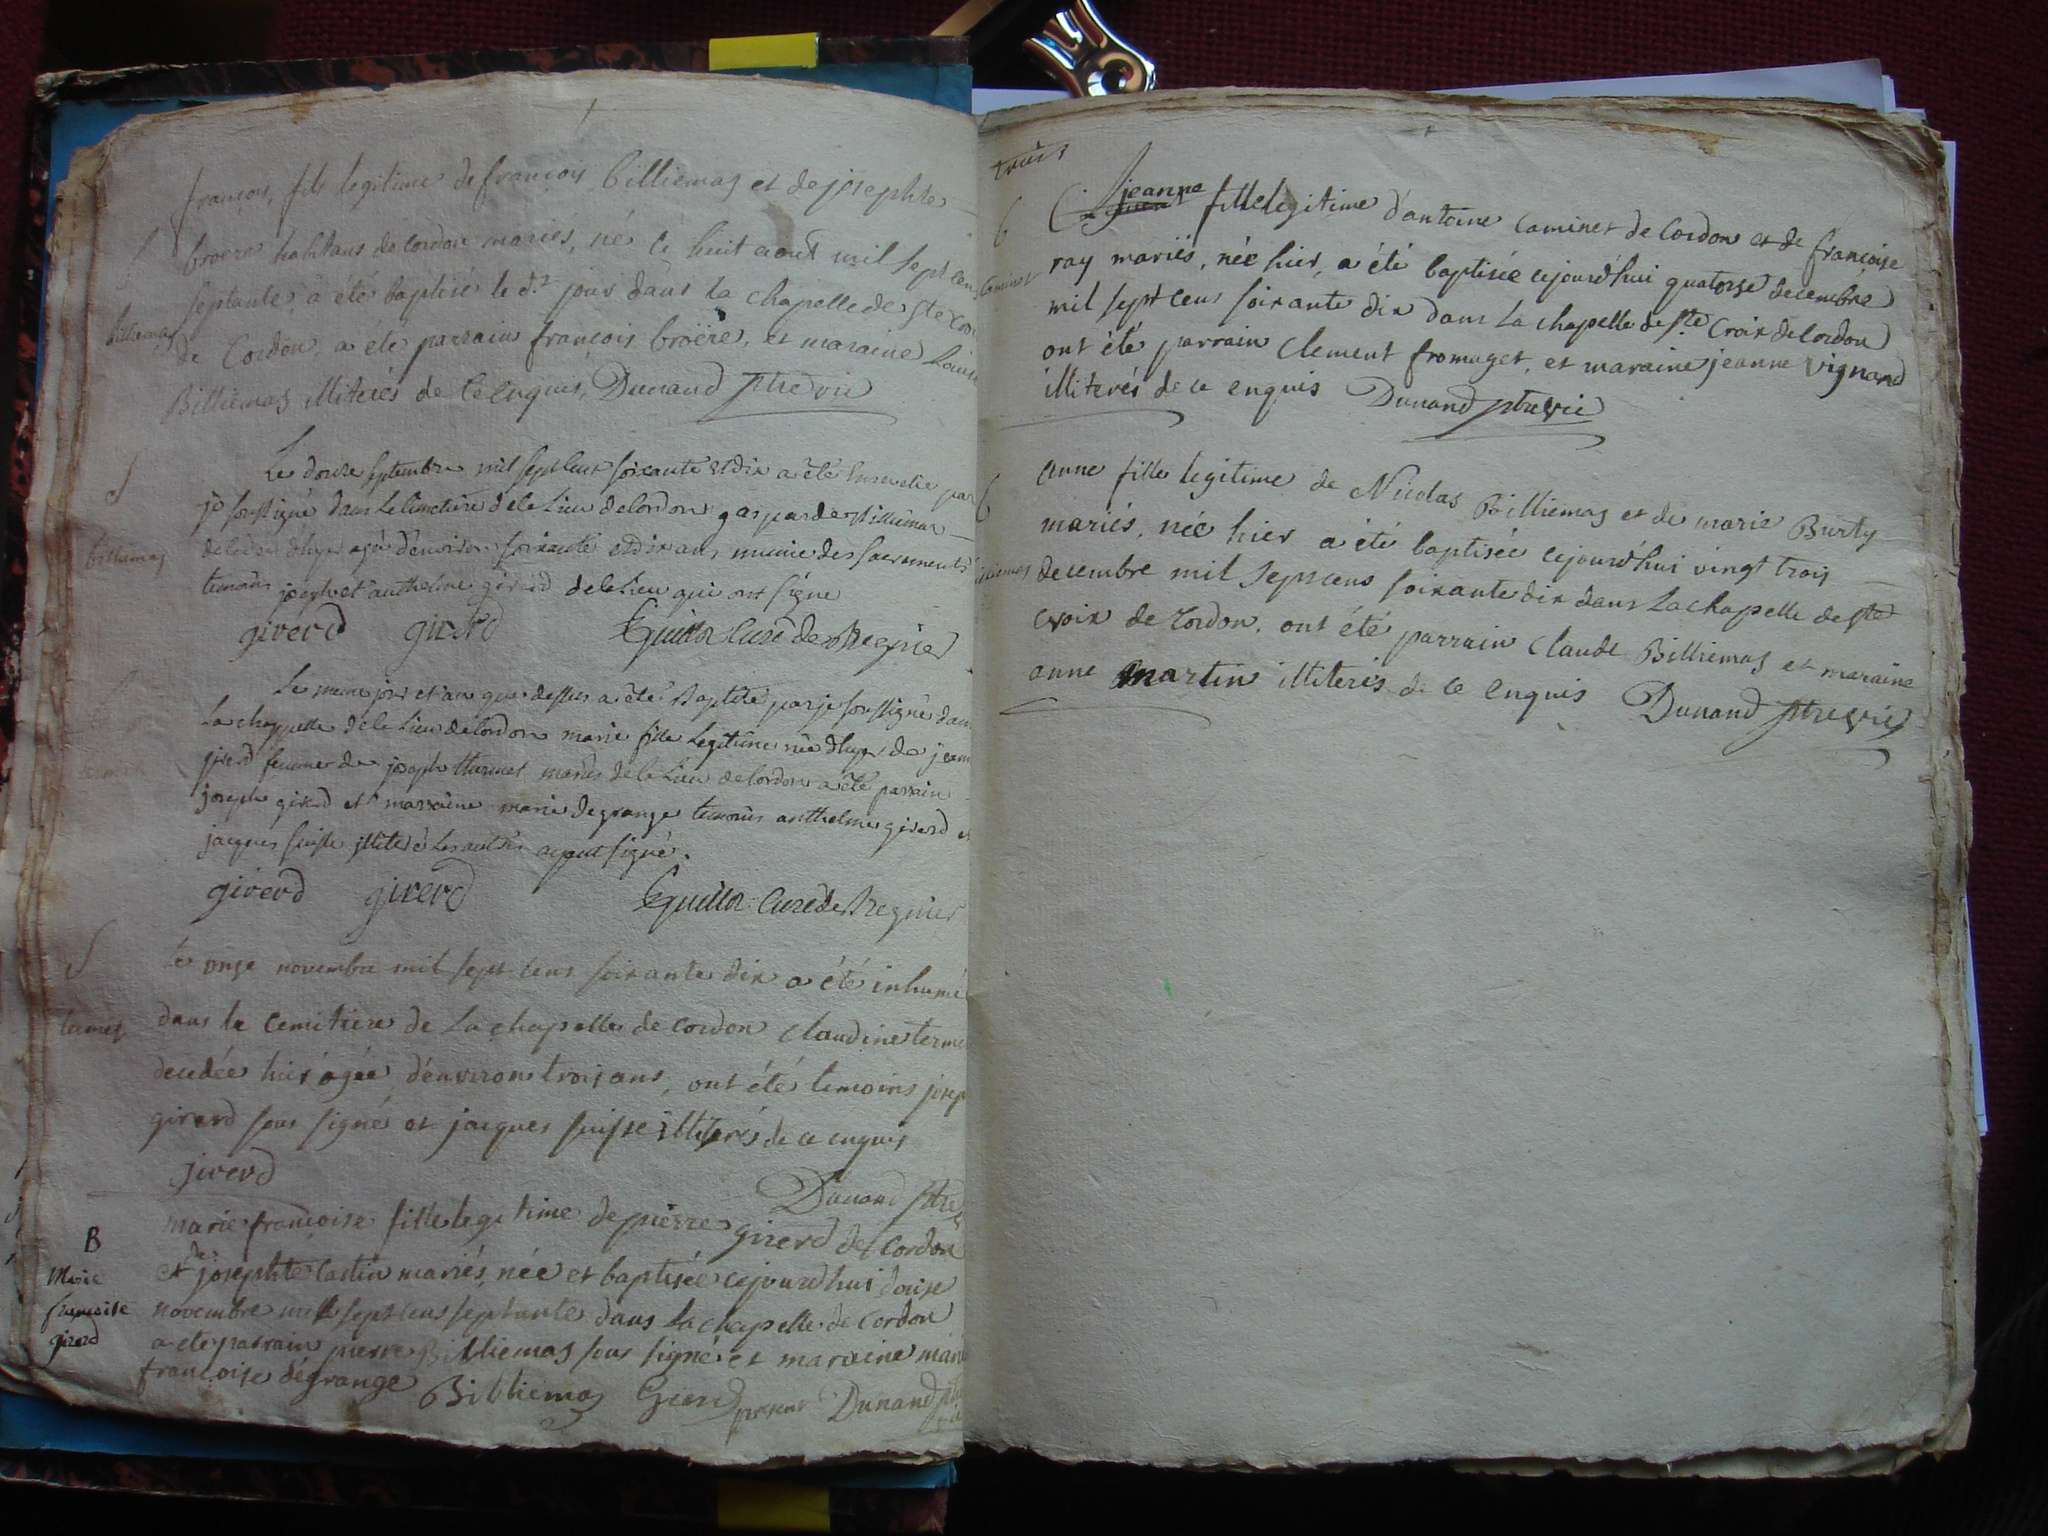 françois, fils legitime de françois billiemaz et de josephte
broëre habitans de Cordon mariés, né le huit aout mil sept cens
septante, a été baptisé le d.t jour dans la chapelle de ste Croix
billiemaz
de Cordon, a été parrain françois broëre, et maraine
Billiemaz illiterés de ce enquis, Dunand ptre vic
S
Le douze septembre mil sept cent soixante et dix a été ensevelie par
je soussigné dans le cimetiere de le lieu de Cordon gasparde Billiemaz
billiemaz
decedée d'hyer agée d'environ soixante et dix ans munie des sacrements
temoins joseph et anthelme girerd de le lieu qui ont signé
girerd girerd Guillot Curé de Bregnier
Le meme jour et an que dessus a été Baptisé par je soussigné dans
la chappelle de le lieu de Cordon marie fille legitime née d'hyer de jeanne
girerd femme de joseph mariés de le lieu de Cordon a été parrain
joseph girerd et marraine marie degrange temoins anthelme girerd et
jacques suisse illiteré les autres ayant signé.
girerd girerd Guillot Curé de Bregnier
S
Le onze novembre mil sept cens soixante dix a été inhumé
dans le cemitiere de la chapelle de Cordon Claudine terme
termez
decedée hier agée d'environ trois ans, ont été temoins josep
girerd sous signé et jacques suisse illiterés de ce enquis
girerd
Dunand ptre
marie françoise fille legitime de pierre girerd de Cordon
B
et de josephte Castin mariés, née et baptisée cejourdhui douse
Marie
françoise
novembre mil sept cens septante dans la chapelle de Cordon
girerd
a ete parrain pierre Billiemaz sous signé et maraine marie
françoise degrange Billiemaz Girerd Dunand ptre
trois
B
jeanne fille legitime d'antoine Caminet de Cordon et de françoise
Caminet
ray mariés, née hier, a été baptisée cejourd'hui quatorse decembre
mil sept cens soixante dix dans la chapelle de ste Croix de Cordon
ont été parrain Clement fromaget, et maraine jeanne Vignand
illiterés de ce enquis Dunand ptre vic
B
anne fille legitime de Nicolas Billiemaz et de marie Burty
mariés, née hier a été baptisée cejourd'hui vingt trois
billiemaz
decembre mil sept cens soixante dix dans la chapelle de ste
Croix de Cordon. ont été parrain Claude Billiemaz et maraine
anne martin illiterés de ce enquis Dunand ptre vic